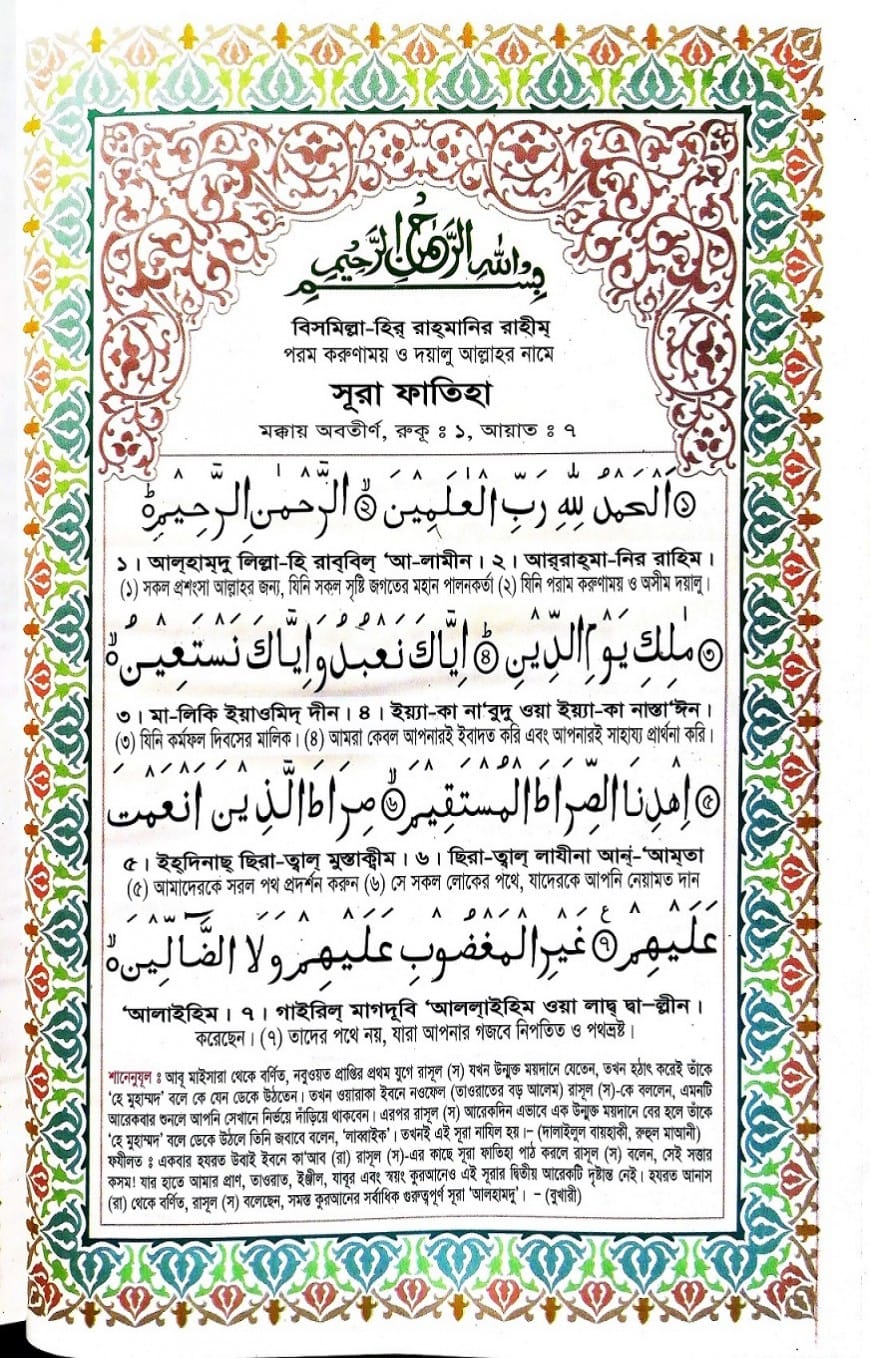 بِسْمِ اللهِ الرَّحْمٰنِ الرَّحِيْمِ
বিসমিল্লা-হির্ রাহ্‌মানির রাহীম্
পরম করুণাময় ও দয়ালু আল্লাহর নামে
সূরা ফাতিহা
মক্কায় অবতীর্ণ, রুকূ ঃ ১, আয়াত ঃ ৭
১ اَلْحَمْدُ لِلّٰهِ رَبِّ الْعٰلَمِيْنَ ২ الرَّحْمٰنِ الرَّحِيْمِ
১। আল্‌হাম্‌দু লিল্লা-হি রাব্‌বিল্ ‘আ-লামীন। ২। আর্‌রাহ্‌মা-নির রাহিম।
(১) সকল প্রশংসা আল্লাহর জন্য, যিনি সকল সৃষ্টি জগতের মহান পালনকর্তা (২) যিনি পরাম করুণাময় ও অসীম দয়ালু।
৩ مٰلِكِ يَوْمِ الدِّيْنِ ৪ اِيَّاكَ نَعْبُدُ وَاِيَّاكَ نَسْتَعِيْنُ
৩। মা-লিকি ইয়াওমিদ্ দীন। ৪। ইয়্যা-কা না‘বুদু ওয়া ইয়্যা-কা নাস্তা‘ঈন।
(৩) যিনি কর্মফল দিবসের মালিক। (৪) আমরা কেবল আপনারই ইবাদত করি এবং আপনারই সাহায্য প্রার্থনা করি।
৫ اِهْدِنَا الصِّرَاطَ الْمُسْتَقِيْمَ ৬ صِرَاطَ الَّذِيْنَ اَنْعَمْتَ
৫। ইহ্‌দিনাছ্ ছিরা-ত্বাল্ মুস্তাক্বীম। ৬। ছিরা-ত্বাল্ লাযীনা আন্-‘আম্‌তা
(৫) আমাদেরকে সরল পথ প্রদর্শন করুন (৬) সে সকল লোকের পথে, যাদেরকে আপনি নেয়ামত দান
عَلَيْهِمْ ৭ غَيْرِ الْمَغْضُوْبِ عَلَيْهِمْ وَلَا الضَّآلِّيْنَ
‘আলাইহিম। ৭। গাইরিল্ মাগদূবি ‘আলল্‌াইহিম ওয়া লাদ্ব দ্বা–ল্লীন।
করেছেন। (৭) তাদের পথে নয়, যারা আপনার গজবে নিপতিত ও পথভ্রষ্ট।
শানেনুযূল ঃ আবূ মাইসারা থেকে বর্ণিত, নবুওয়ত প্রাপ্তির প্রথম যুগে রাসূল (স) যখন উন্মুক্ত ময়দানে যেতেন, তখন হঠাৎ করেই তাঁকে
‘হে মুহাম্মদ’ বলে কে যেন ডেকে উঠতেন। তখন ওয়ারাকা ইবনে নওফেল (তাওরাতের বড় আলেম) রাসূল (স)-কে বললেন, এমনটি
আরেকবার শুনলে আপনি সেখানে নির্ভয়ে দাঁড়িয়ে থাকবেন। এরপর রাসূল (স) আরেকদিন এভাবে এক উন্মুক্ত ময়দানে বের হলে তাঁকে
‘হে মুহাম্মাদ’ বলে ডেকে উঠলে তিনি জবাবে বলেন, ‘লাব্বাইক’। তখনই এই সূরা নাযিল হয়।– (দালাইলুল বায়হাকী, রুহুল মাআনী)
ফযীলত ঃ একবার হযরত উবাই ইবনে কা‘আব (রা) রাসূল (স)-এর কাছে সূরা ফাতিহা পাঠ করলে রাসূল (স) বলেন, সেই সত্তার
কসম! যার হাতে আমার প্রাণ, তাওরাত, ইঞ্জীল, যাবুর এবং স্বয়ং কুরআনেও এই সূরার দ্বিতীয় আরেকটি দৃষ্টান্ত নেই। হযরত আনাস
(রা) থেকে বর্ণিত, রাসূল (স) বলেছেন, সমস্ত কুরআনের সর্বাধিক গুরুত্বপূর্ণ সূরা ‘আলহামদু’। – (বুখারী)